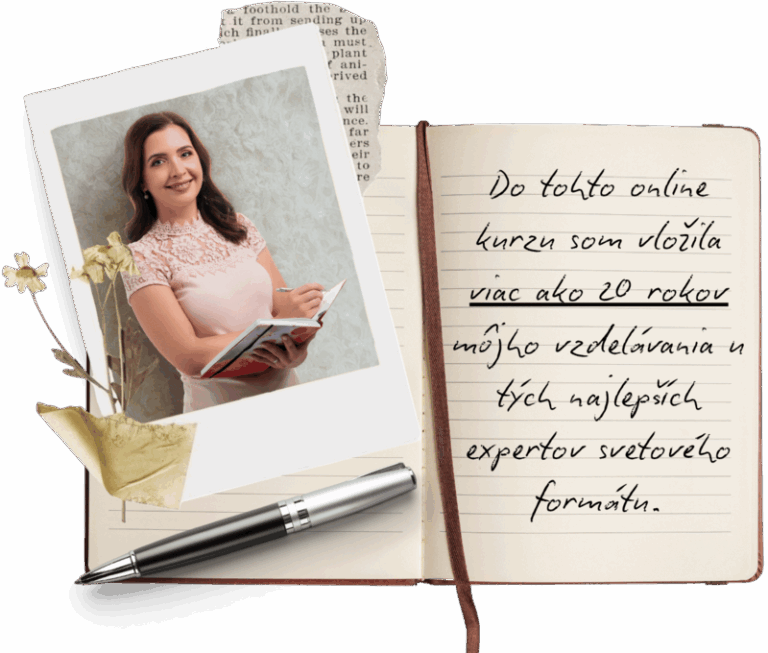 a foothold the
t it from sending up
ch final
ses the
must
plant
f ani-
erived
the
will
nce.
far
ers
eir
to
re
Do tohto online
kurzu som vložila
viac ako 20 rokov
môjho vzdelávania u
tých najlepších
expertov svetového
formátu.